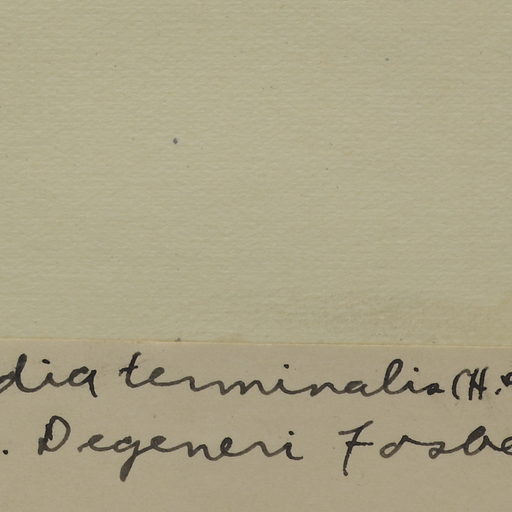 dia terminalis (H.
. Degeneri Fosbe